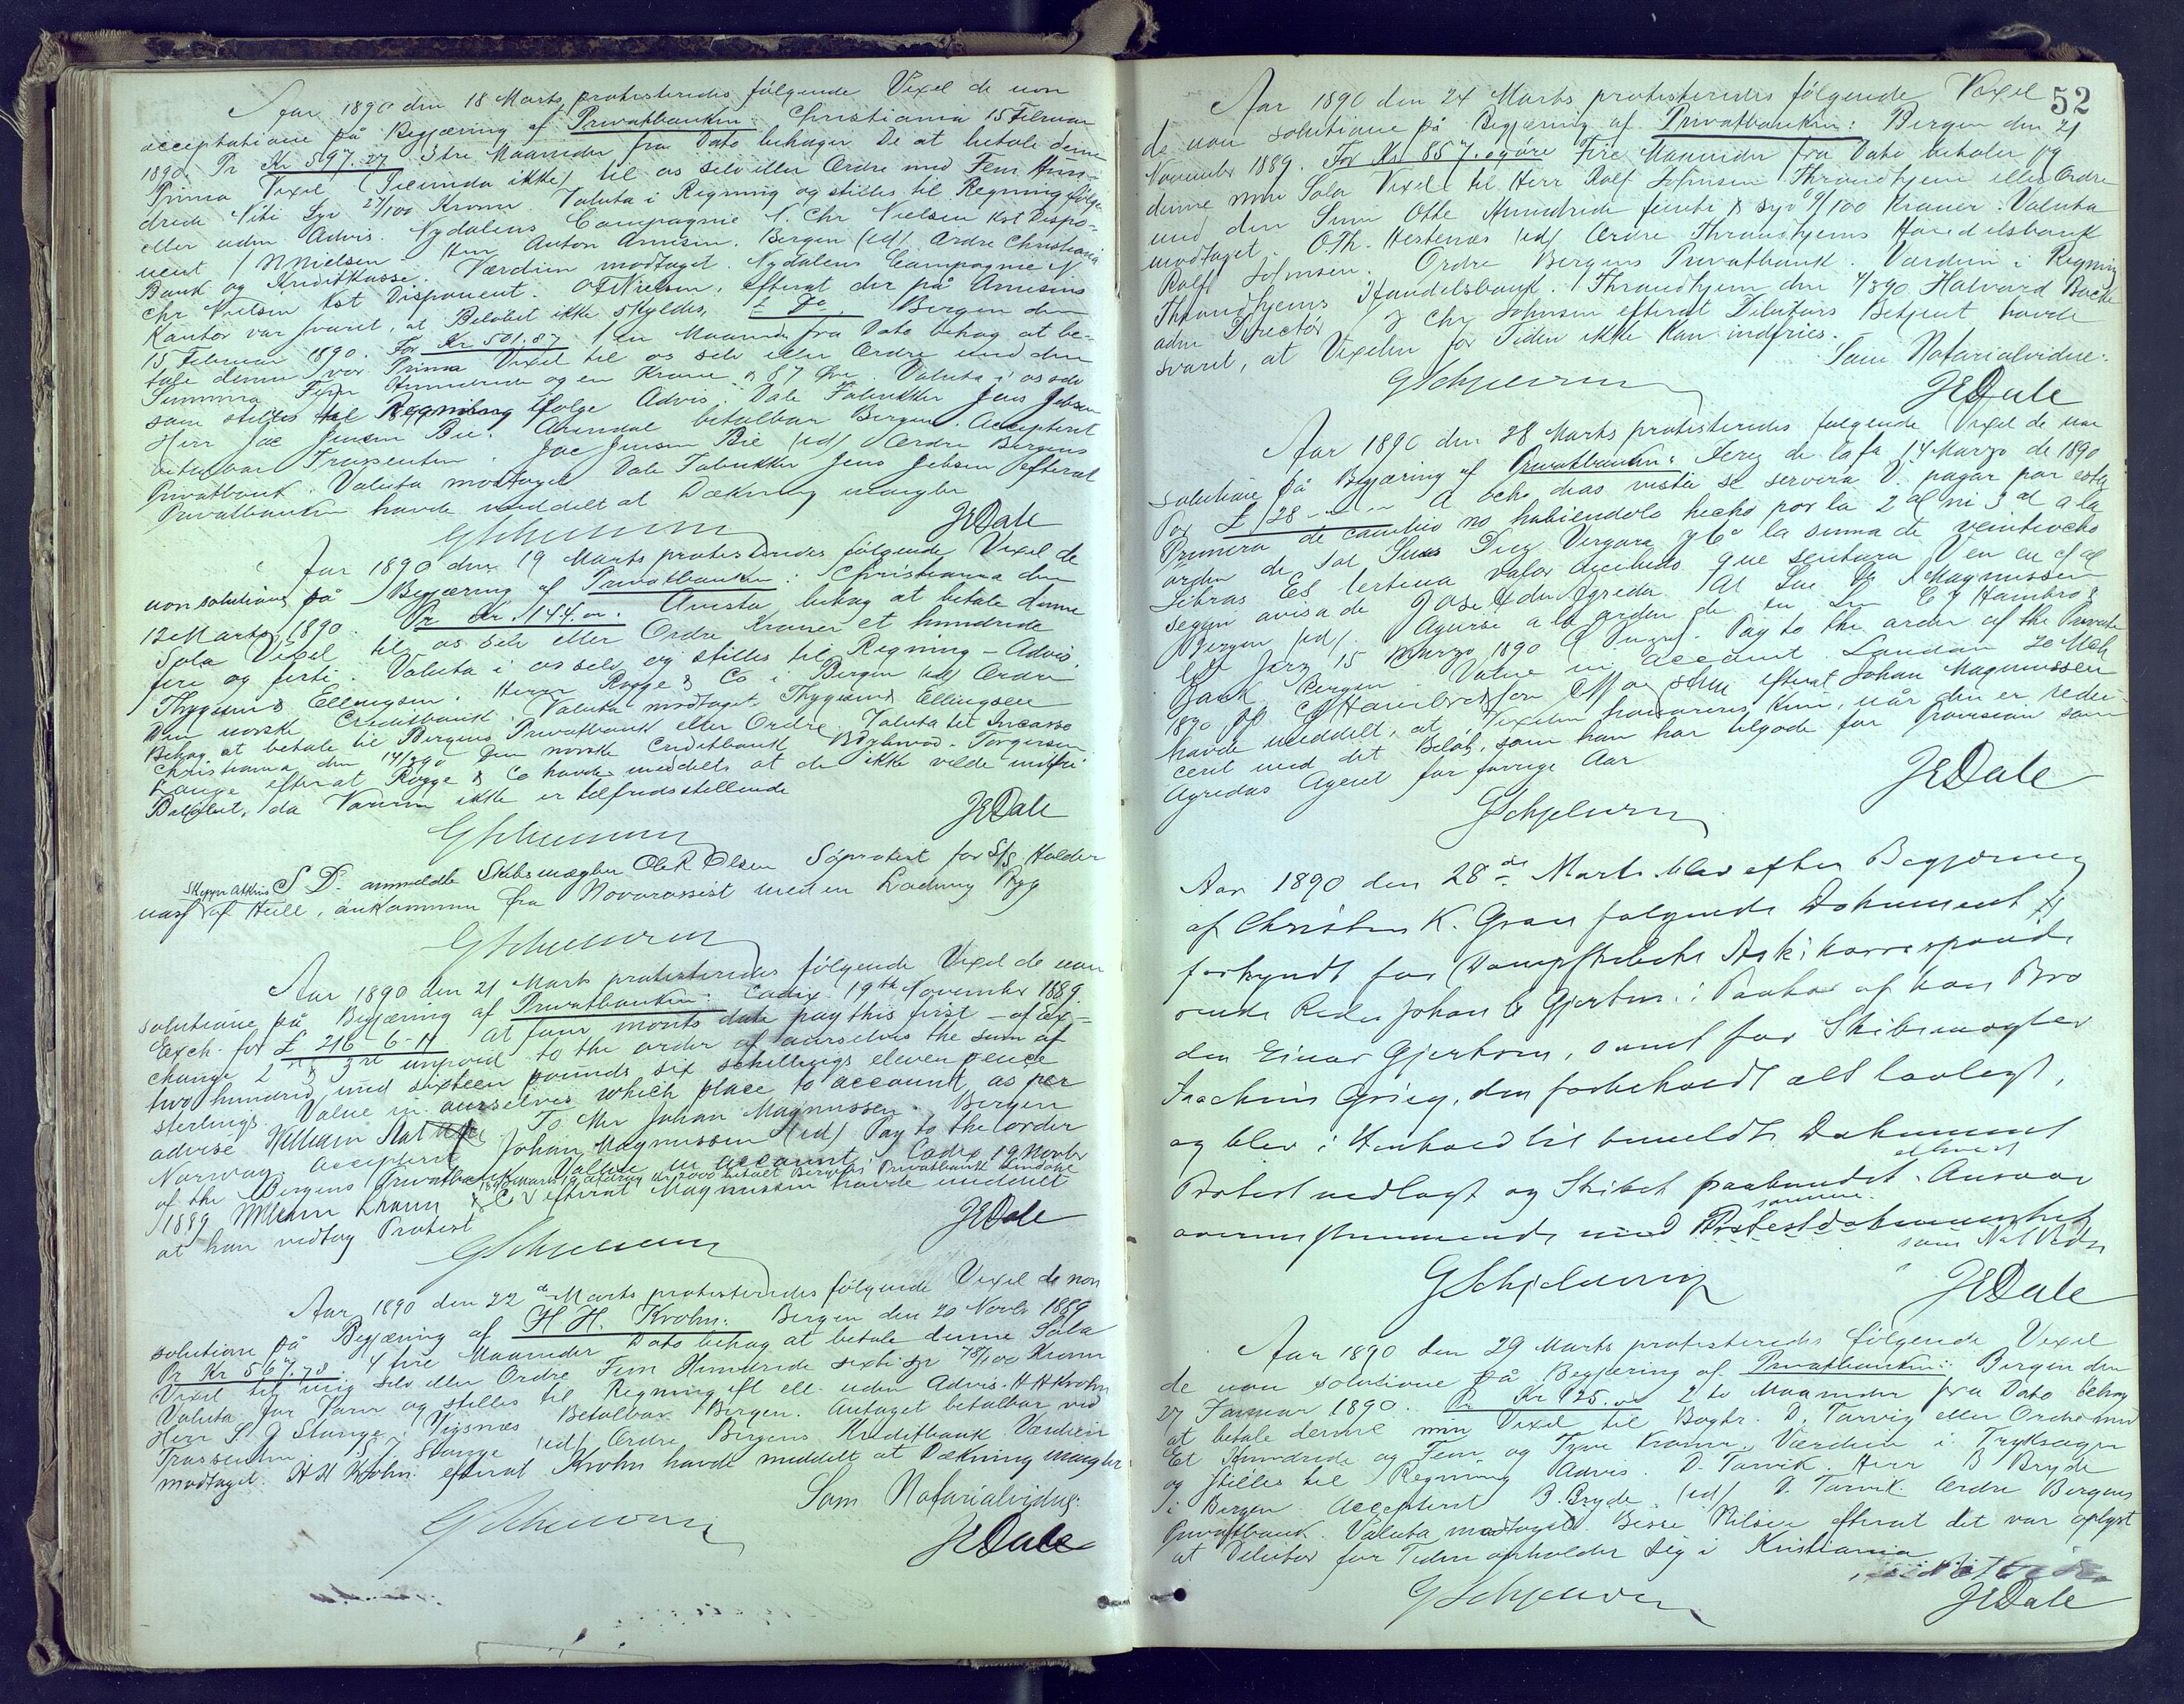 Aar 1890 den 18 Marts protesteredes følgende Vexel de non
acceptatione på Begjæring af Privatbanken: Christiania 15 Februar
1890. Pr Kr 597.27 3 tre Maaneder fra Dato behager De at betale denne
Prima Vexel (Secunda ikke) til os selv eller Ordre med Fem Hun-
drede Niti Syv 27/100 Kroner. Valuta i Regning og stilles til Regning ifølge
eller uden Advis. Nydalens Compagnie N. Chr Nielsen Kst Dispo-
nent / N Nielsen. Herr Anton Arnesen. Bergen (ed) Ordre Christiania
Bank og Kreditkasse. Værdien modtaget. Nydalens Compagnie N
Chr Nielsen Kst Disponent. Nielsen, efterat der på Arnesens
Kontor var svaret, at Beløbet ikke skyldes. Bergen den
15 Februar 1890. For Kr 501.87 1 en Maaned fra Dato behag at be-
tale denne vor Prima Vexel til os selv eller Ordre med den
Summa Fem Hundrede og en Krone & 87 Øre Valuta i os selv
som stilles til Regning ifølge Advis. Dale Fabrikker Jens Jebsen
Herr Jac Jensen Bie. Arendal betalbar Bergen. Accepteret
betalbar Trassenten. Jac Jensen Bie (ed) Ordre Bergens
Privatbank. Valuta modtaget Dale Fabrikker Jens Jebsen efterat
Privatbanken havde meddelt at Dækning mangler
GSchjelderup JEDale
Aar 1890 den 19 Marts protesteredes følgende Vexel de
non solutione på Begjæring af Privatbanken: Christiania den
12 Marts 1890. Pr Kr 144.00. Avista behag at betale denne
Sola Vexel til os selv eller Ordre Kroner et hundrede
fire og firti. Valuta i os selv og stilles til Regning - Advis.
Thygesen & Ellingsen. Herrer Rogge & Co i Bergen (ed) Ordre
Den norske Creditbank. Valuta modtaget. Thygesen & Ellingsen
Behag at betale til Bergens Privatbank eller Ordre. Valuta til Incasso
Christiania den 14/3 90 Den norske Creditbank Torgersen
Lange efterat Rogge & Co havde meddelt at de ikke vilde indfri
Beløbet, da Varerne ikke er tilfredsstillende
GSchjelderup JEDale
S. D. anmeldte Skibsmægler Ole R Olsen Søprotest for S/S. Holder
ness af Hull, ankommen fra Novorossist med en Ladning Rug
GSchjelderup
Aar 1890 den 21 Marts protesteredes følgende Vexel de non
solutione på Begjæring af Privatbanken: Cadix 19th November 1889.
Exch. for £ 216-6-11 At four months date pay this first of ex-
change 2nd & 3rd unpaid to the order of ourselves the sum of
two hundred and sixteen pounds six schillings eleven pence
sterlings. Value in ourselves which place to account, as per
advise William To Mr Johan Magnussen. Bergen
Norway. Accepteret Johan Magnussen (ed) Pay to the order
of the Bergens Privatbank Value in account. Cadix 19 Novbr
1889 William & Co efterat Magnussen havde meddelt
at han vedtog Protest
GSchjelderup JEDale
Aar 1890 den 22de Marts protesteredes følgende Vexel de non
solutione på Begjæring af H. H. Krohn: Bergen den 20 Novbr 1889
Pr Kr 567.78. 4 fire Maaneder Dato behag at betale denne Sola
Vexel til mig selv eller Ordre Fem Hundrede sexti syv 78/100 Kroner
Valuta for Varer og stilles til Regning ifl ell. uden Advis. H H Krohn
Herr S. J Stange, Vigsnæs Betalbar Bergen. Antaget betalbar ved
Trassenten S J Stange (ed) Ordre Bergens Kreditbank Værdien
modtaget. H H Krohn. efterat Krohn havde meddelt at Dækning mangler
Som Notarialvidne:
GSchjelderup JEDale
52
Aar 1890 den 24 Marts protesteredes følgende Vexel
de non solutione på Begjæring af Privatbanken: Bergen den 21
November 1889. For Kr 857.09 øre Fire Maaneder fra Dato betaler jeg
denne min Sola Vexel til Herr Rolf Johnsen Throndhjem eller Ordre
med den Sum Otte Hundrede femti & syv 9/100 Kroner. Valuta
modtaget. O.Th. Hestenæs (ed) Ordre Throndhjems Handelsbank
Rolf Johnsen. Ordre Bergens Privatbank. Værdien i Regning
Throndhjems Handelsbank. Throndhjem den 4/3 90 Halvard Backe
adm Directør J Chr Johnsen efterat Debitors Betjent havde
svaret, at Vexelen for Tiden ikke kan indfries.
Som Notarialvidne:
GSchjelderup JEDale
Aar 1890 den 28 Marts protesteredes følgende Vexel de non
solutione på Begjæring af Privatbanken: Jerez de la fa 14 Marzo de 1890
Por £ 28 - " - " A ocho dias vista se servira V. pagar por esta
Primera de cambio no habiendolo hecho por la 2a ni 3a a la
orden de Sres Diez Vergara y Ca la suma de veintiocho
Libras Es. Valor recibido que sentara V en cu
segun aviso de José de Agreda. Al Sor Dn J Magnussen
Bergen (ed). Paguese a la orden de C J Hambro &
Jerez 15 Marzo 1890. Pay to the order of the Private
Bank Bergen. Value in account London 20 Mch
1890 pp C J Hambro & Son efterat Johan Magnussen
havde meddelt, at Vexelen honoreres kun, når den er redu-
ceret med det Beløb, som han har tilgode for Provision som
Agredas Agent for forrige Aar
GSchjelderup JEDale
Aar 1890 den 28de Marts blev efter Begjæring
af Christen K. Gran følgende Dokument
forkyndt for Dampskibets Aski korrespond
rende Reder Johan C Gjertsen i Paahør af hans Bro
der Einar Gjertsen, samt for Skibsmægler
Joachim Grieg, den forbeholdt alt lovligt,
og blev i Henhold til bemeldte Dokument
Protest nedlagt og Skibet paabundet Ansvar
overensstemmende med Protestdokumentet
som Not Vidne
GSchjelderup JEDale
Aar 1890 den 29 Marts protesteredes følgende Vexel
de non solutione på Begjæring af Privatbanken: Bergen den
27 Januar 1890. Pr Kr 125.00 2 to Maaneder fra Dato behag
at betale denne min Vexel til Bogtr. D. Tarvig eller Ordre med
Et Hundrede og Fem og Tyve Kroner. Værdien i Tryksager
og stilles til Regning Advis. D. Tarvik. Herr B Bryde
i Bergen. Accepteret B. Bryde. (ed) D Tarvik. Ordre Bergens
Privatbank. Valuta modtaget. Nilsen efterat det var oplyst
at Debitor for Tiden opholder sig i Kristiania
GSchjelderup JEDale